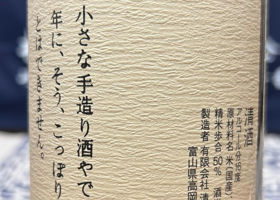 清酒
アルコール分16度
原材料名 米(国産)
精米歩合50% 酒
製造者 有限会社 清
富山県高岡
小さな手造り酒やで
年に、そう、こっぽり
とはできません。